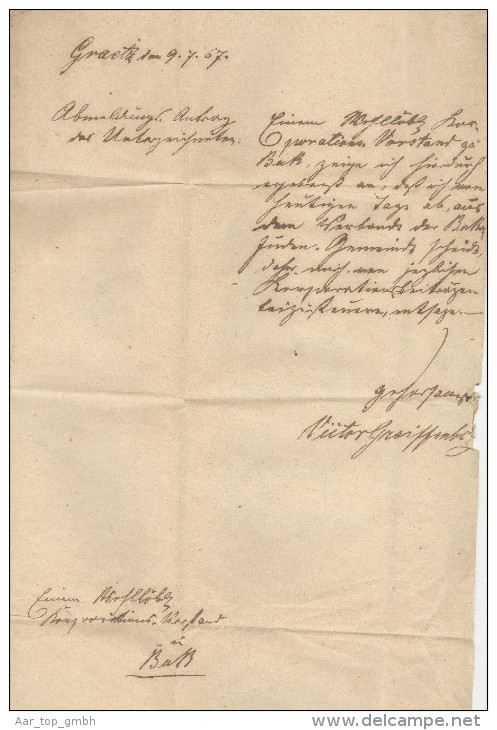 Graetz den 9. 7. 67.
Abmeldungs-Antrag
des Unterzeichneten.
Einem Wohllöbl. Kor-
porations Vorstand zu
Buk, zeige ich hierdurch
ergebenst an, daß ich vom
heutigen Tage ab, aus
dem Verbande der Buker
Juden-Gemeinde scheide,
daher mich von jeglichen
Korporations beiträgen
beizusteuern, entsage.
gehorsamst
Victor Greiffenb
Einem Wohllöbl.
Korporations-Vorstand
Buk
Aar_top_gmbh